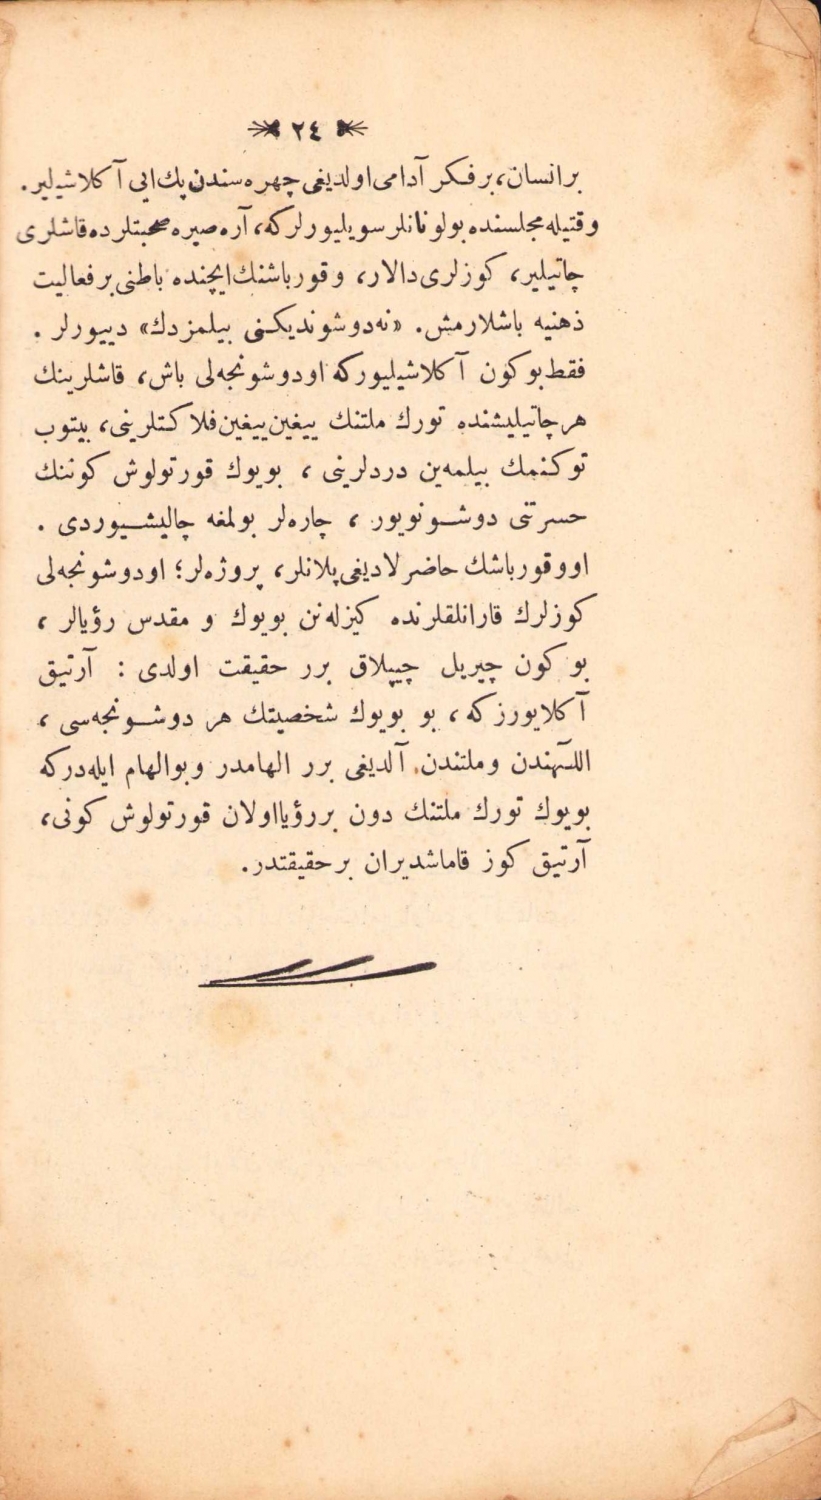 ٢٤
بر انسان، بر فكر آدامى اولديغى چهره سندن پك ايى آكلاشيلير.
وقتيله مجلسنده بولونانلر سويليورلركه، آره صيره صحبتلرده قاشلرى
چاتيلير، كوزلرى دالار، وقور باشنك ايچنده باطنى بر فعاليت
ذهنيه باشلارمش. «نه دوشونديكنى بيلمزدك» دييورلر.
فقط بوكون آكلاشيليوركه او دوشونجه لى باش، قاشلرينك
هر چاتيليشنده تورك ملتنك ييغين ييغين فلاكتلرينى، بيتوب
توكنمك بيلمه ين دردلرينى، بويوك قورتولوش كوننك
حسرتنى دوشونويور، چاره لر بولمغه چاليشيوردى.
او وقور باشك حاضرلاديغى پلانلر، پروژه لر؛ او دوشونجه لى
كوزلرك قارانلقلرنده كيزله نن بويوك و مقدس رؤيالر،
بو كون چيريل چيپلاق برر حقيقت اولدى: آرتيق
آكلايورزكه، بو بويوك شخصيتك هر دوشونجه سى،
اللهندن وملتندن آلديغى برر الهامدر وبو الهام ايله دركه
بويوك تورك ملتنك دون بر رؤيا اولان قورتولوش كونى،
آرتيق كوز قاماشديران بر حقيقتدر.